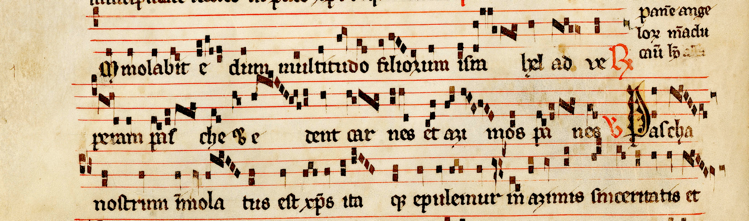 panē ange
loꝝ mādu
cau
ymolabit e dum multitudo filiorum isra hel ad ve R
peram pas che Et e dent car nes et azi mos pa nes V Pascha
nostrum īmola tus est xp̄s ita qꝫ epulemur in azimis sinceritatis et